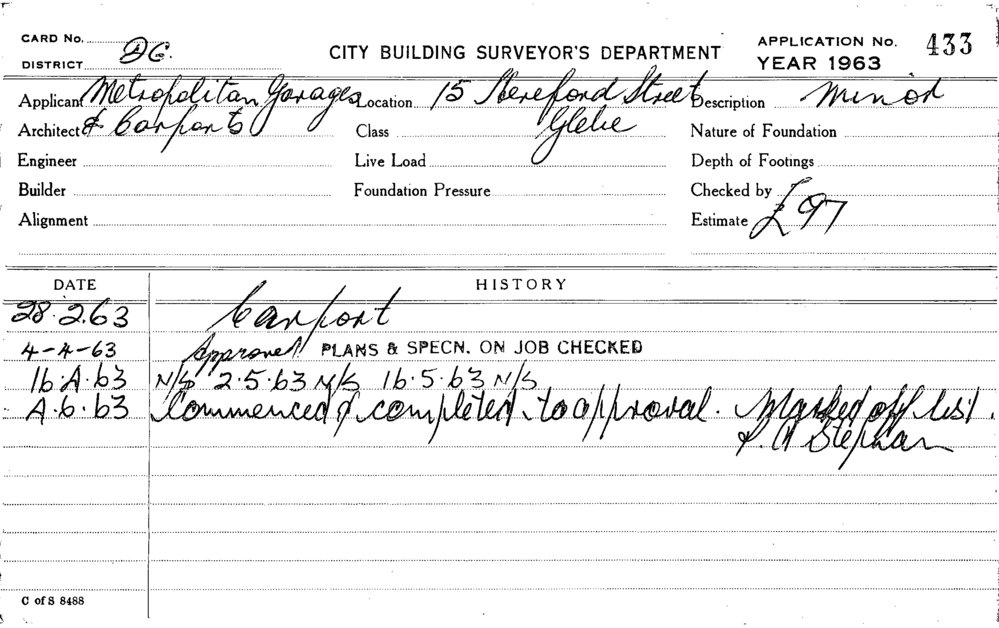 CARD No.
DISTRICT DG.
CITY BUILDING SURVEYOR'S DEPARTMENT
APPLICATION No. 433
YEAR 1963
Applicant Metropolitan Garages Location 15 Hereford Street Description Minor
Architect & Carports Class Glebe Nature of Foundation
Engineer Live Load Depth of Footings
Builder Foundation Pressure Checked by
Alignment Estimate £97
DATE HISTORY
28.2.63 Carport
4-4-63 Approved PLANS & SPECN. ON JOB CHECKED
16.4.63 N/S 2.5.63 N/S 16.5.63 N/S
4.6.63 Commenced & completed to approval. Marked off list.
Stephan
C of S 8488